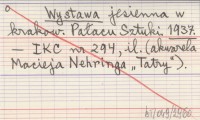 Wystawa jesienna w
krakow. Pałacu Sztuki 1937.
— IKC nr 294, il. (akwarela
Macieja Nehringa „Tatry").